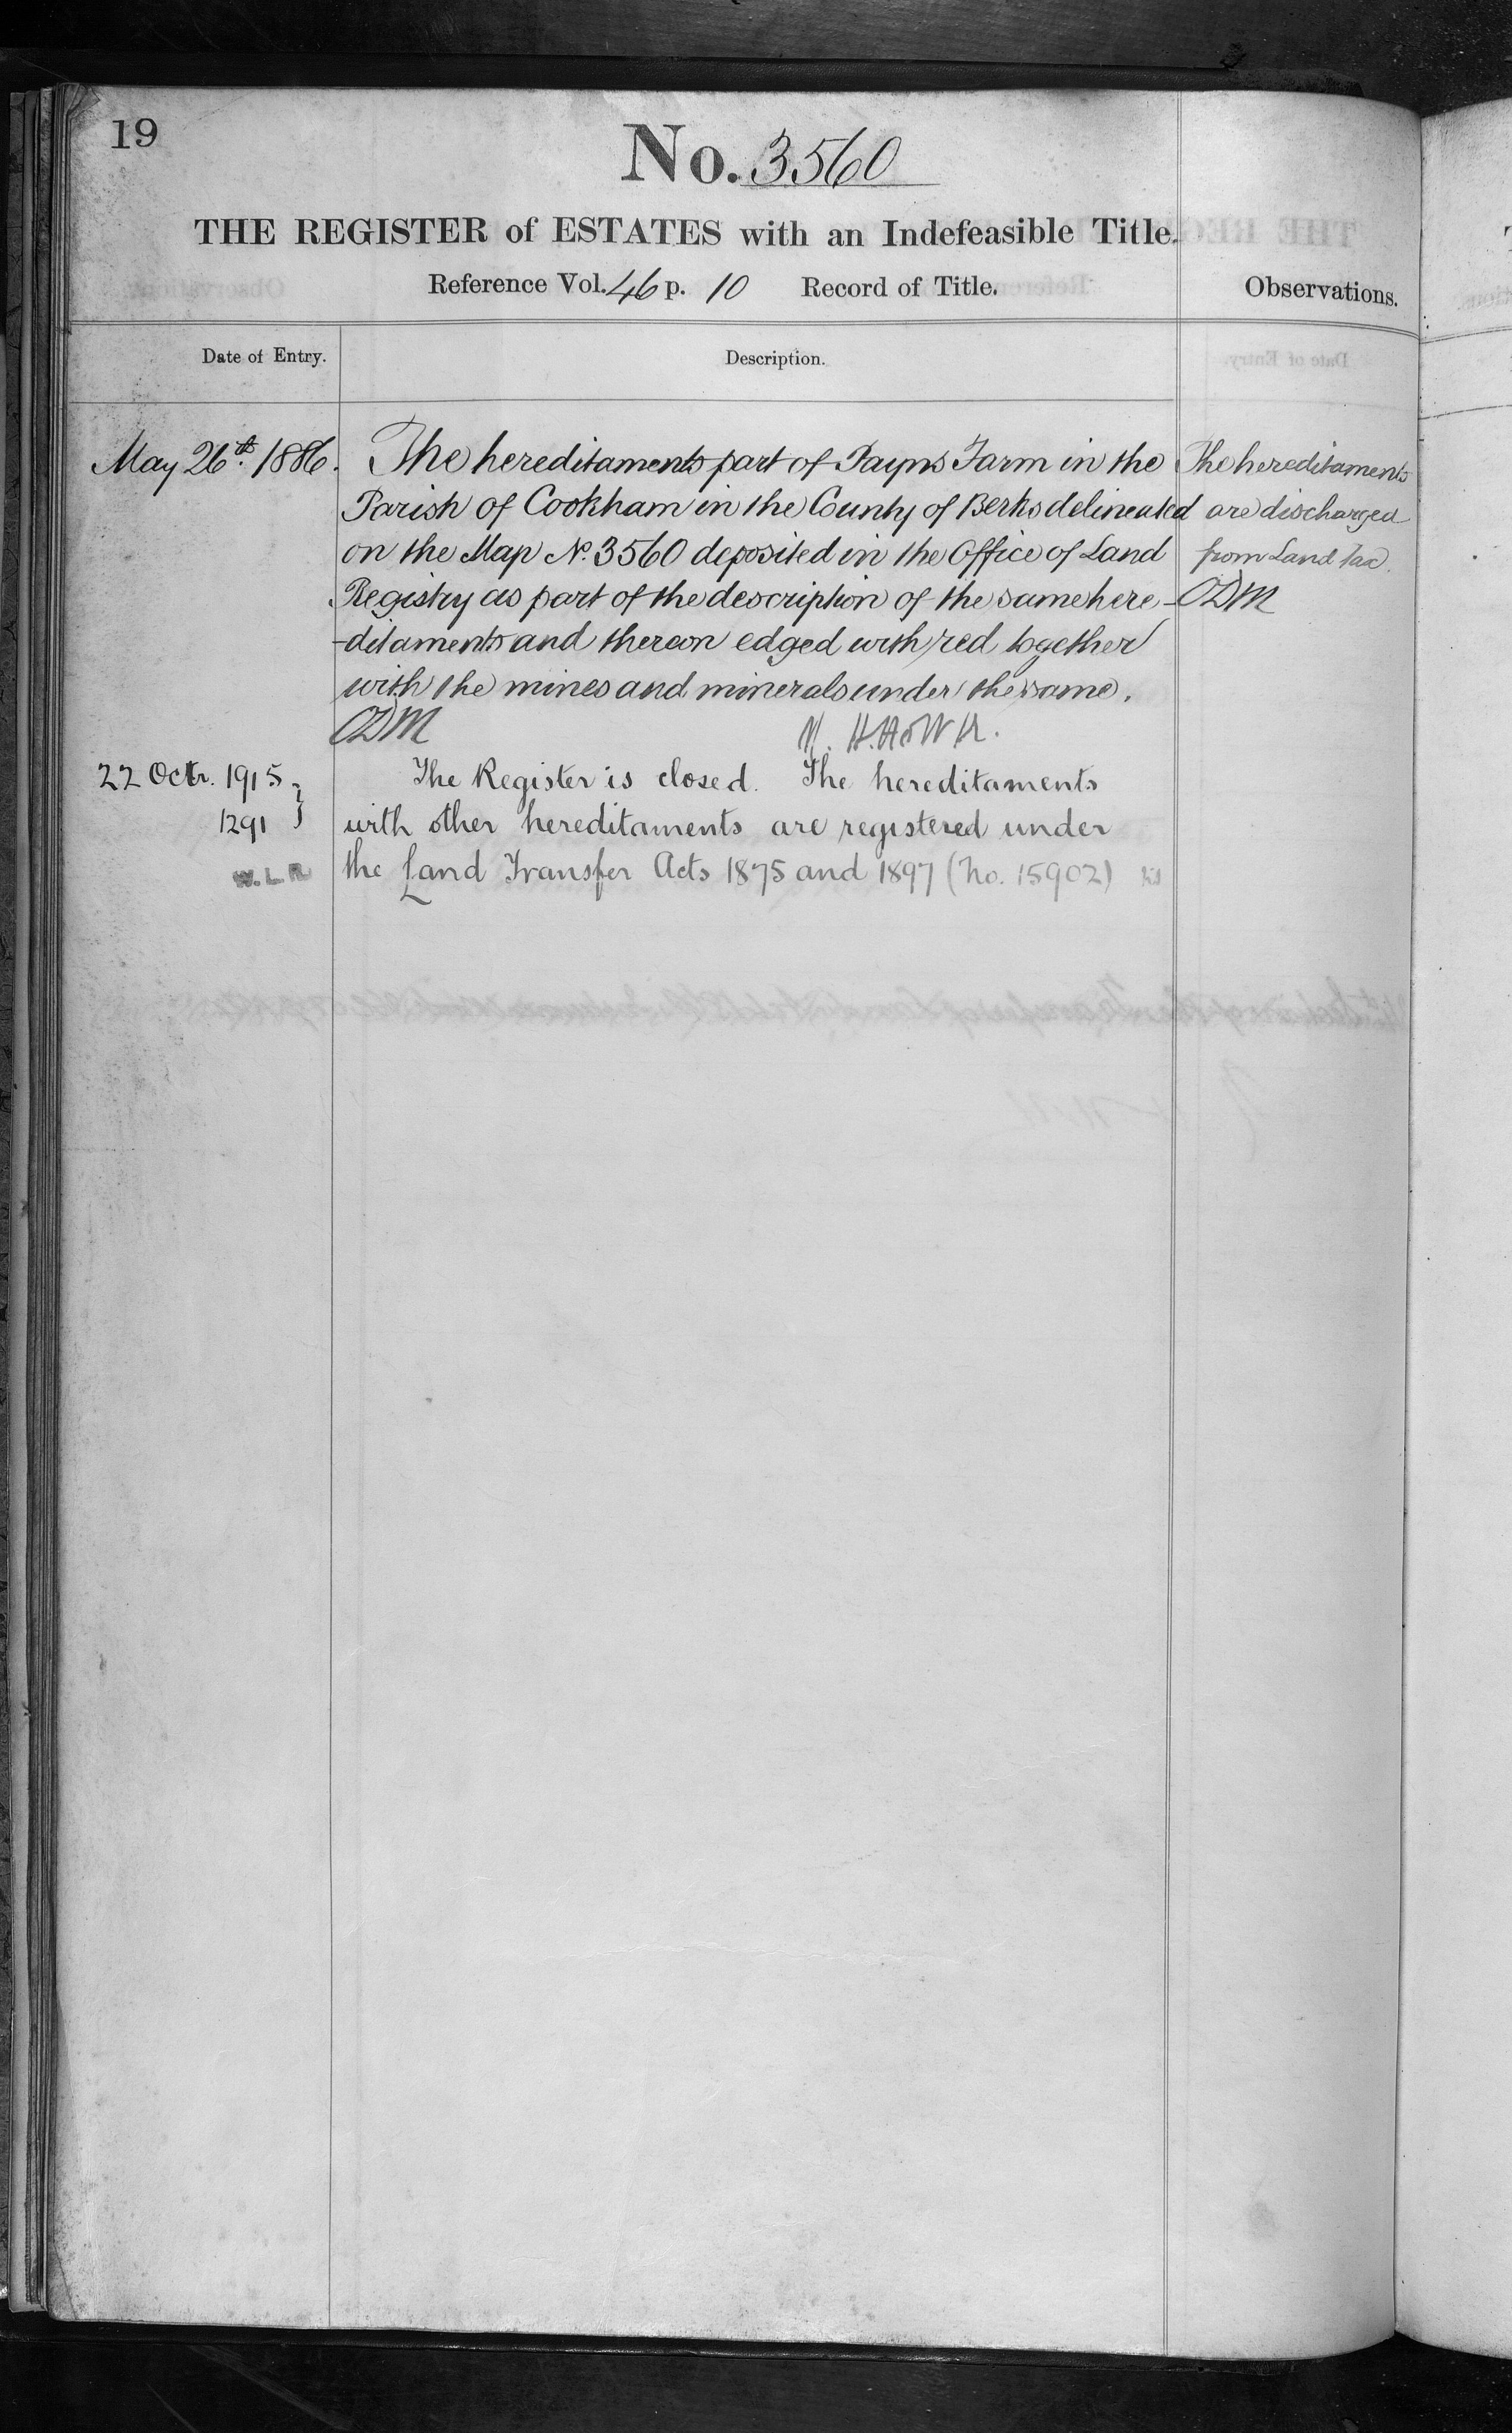 19
No. 3560
THE REGISTER of ESTATES with an Indefeasible Title.
Reference Vol. 46 p. 10 Record of Title.
Observations.
Date of Entry.
Description.
May 26th. 1886.
The hereditaments part of Payns Farm in the
Parish of Cookham in the County of Berks delineated
on the Map No. 3560 deposited in the Office of Land
Registry as part of the description of the same here-
-ditaments and thereon edged with red together
with the mines and minerals under the same.
The hereditaments
are discharged
from Land Tax.
22 Octr. 1915
1291
W. L. R.
The Register is closed. The hereditaments
with other hereditaments are registered under
the Land Transfer Acts 1875 and 1897 (No. 15902)